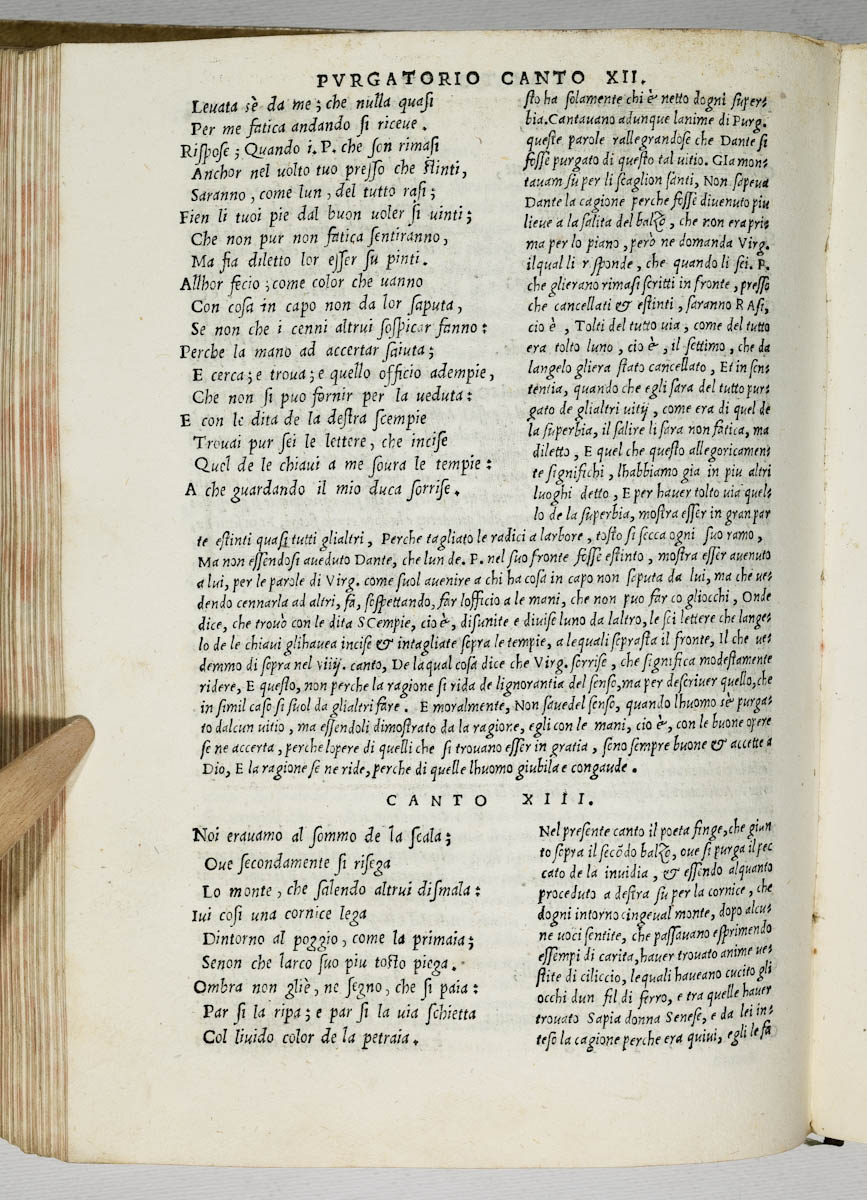 PVRGATORIO CANTO XII.
Leuata sè da me; che nulla quasi
Per me fatica andando si riceue.
Rispose; Quando i. P. che son rimasi
Anchor nel uolto tuo presso che stinti,
Saranno, come lun, del tutto rasi;
Fien li tuoi pie dal buon uoler si uinti;
Che non pur non fatica sentiranno,
Ma fia diletto lor esser su pinti.
Allhor fecio; come color che uanno
Con cosa in capo non da lor saputa,
Se non che i cenni altrui sospicar fanno:
Perche la mano ad accertar saiuta;
E cerca; e troua; e quello officio adempie,
Che non si puo fornir per la ueduta:
E con le dita de la destra scempie
Trouai pur sei le lettere, che incise
Quel de le chiaui a me soura le tempie:
A che guardando il mio duca sorrise.
sto ha solamente chi è netto dogni super-
bia. Cantauano adunque lanime di Purg.
queste parole rallegrandose che Dante si
fosse purgato di questo tal uitio. GIa mon-
tauam su per li scaglion santi, Non sapeua
Dante la cagione perche fosse diuenuto piu
lieue a la salita del balzo, che non era pri-
ma per lo piano, però ne domanda Virg.
ilqual li risponde, che quando li sei. P.
che glierano rimasi scritti in fronte, presso
che cancellati & estinti, saranno RAsi,
cio è, Tolti del tutto uia, come del tutto
era tolto luno, cio è, il settimo, che da
langelo gliera stato cancellato, Et in sen-
tentia, quando che egli sara del tutto pur-
gato de glialtri uitij, come era di quel de
la superbia, il salire li sara non fatica, ma
diletto, E quel che questo allegoricamen-
te significhi, lhabbiamo gia in piu altri
luoghi detto, E per hauer tolto uia quel-
lo de la superbia, mostra esser in gran par
te estinti quasi tutti glialtri, Perche tagliato le radici a larbore, tosto si secca ogni suo ramo,
Ma non essendosi aueduto Dante, che lun de. P. nel suo fronte fosse estinto, mostra esser auenuto
a lui, per le parole di Virg. come suol auenire a chi ha cosa in capo non saputa da lui, ma che ue-
dendo cennarla ad altri, fa, sospettando, far lofficio a le mani, che non puo far co gliocchi, Onde
dice, che trouò con le dita SCempie, cio è, disunite e diuise luno da laltro, le sei lettere che lange-
lo de le chiaui glihauea incise & intagliate sopra le tempie, a lequali soprasta il fronte, Il che ue-
demmo di sopra nel viiij. canto, De laqual cosa dice che Virg. sorrise, che significa modestamente
ridere, E questo, non perche la ragione si rida de lignorantia del senso, ma per descriuer quello, che
in simil caso si suol da glialtri fare. E moralmente, Non sauedel senso, quando lhuomo sè purga-
to dalcun uitio, ma essendoli dimostrato da la ragione, egli con le mani, cio è, con le buone opere
se ne accerta, perche lopere di quelli che si trouano esser in gratia, sono sempre buone & accette a
Dio, E la ragione se ne ride, perche di quelle lhuomo giubila e congaude.
CANTO XIII.
Noi erauamo al sommo de la scala;
Oue secondamente si risega
Lo monte, che salendo altrui dismala:
Iui cosi una cornice lega
Dintorno al poggio, come la primaia;
Senon che larco suo piu tosto piega.
Ombra non gliè, ne segno, che si paia:
Par si la ripa; e par si la uia schietta
Col liuido color de la petraia.
Nel presente canto il poeta finge, che giun
to sopra il secōdo balzo, oue si purga il pec
cato de la inuidia, & essendo alquanto
proceduto a destra su per la cornice, che
dogni intorno cingeual monte, dopo alcu-
ne uoci sentite, che passauano esprimendo
essempi di carita, hauer trouato anime ue-
stite di ciliccio, lequali haueano cucito gli
occhi dun fil di ferro, e tra quelle hauer
trouato Sapia donna Senese, e da lei in-
teso la cagione perche era quiui, egli le fa